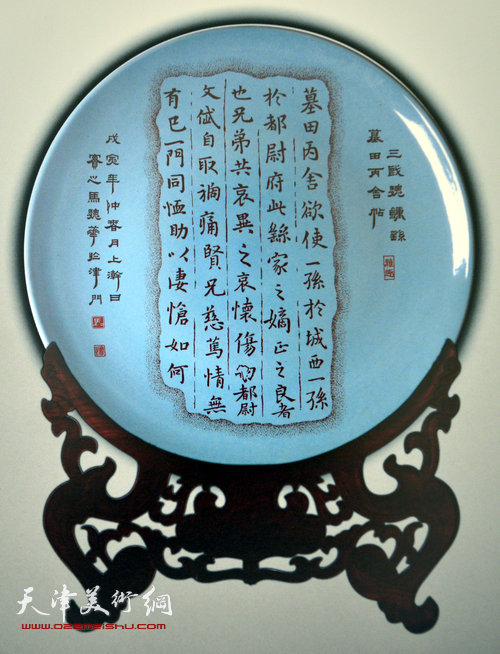 三國魏鍾繇
墓田丙舍帖
墓田丙舍欲使一孫於城西一孫
於都尉府此繇家之嫡正之良者
也兄弟共哀異之哀懷傷切都尉
文岱自取禍痛賢兄慈篤情無
有已一門同恤助以悽愴如何
戊寅年仲春月上澣日
馬魏華 津門
天津美術網
www.022meishu.com